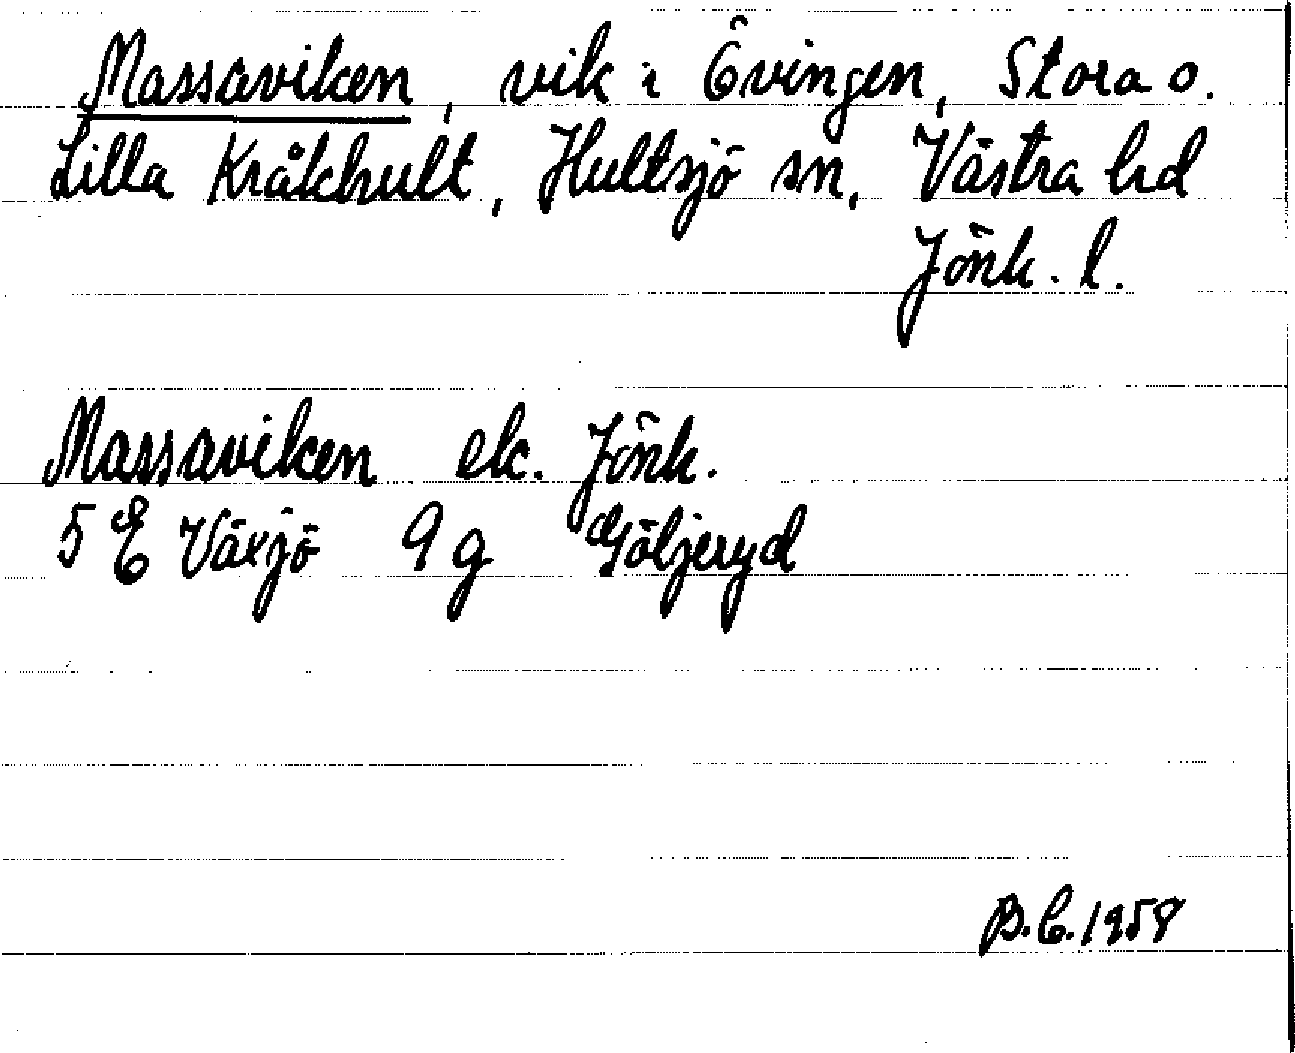 Massaviken, vik i Övingen, Stora o.
Lilla Kråkhult, Hultsjö sn, Västra hd
Jönk. l.
Massaviken ek. Jönk.
5 E Växjö 9 g Göljeryd
B.C. 1958